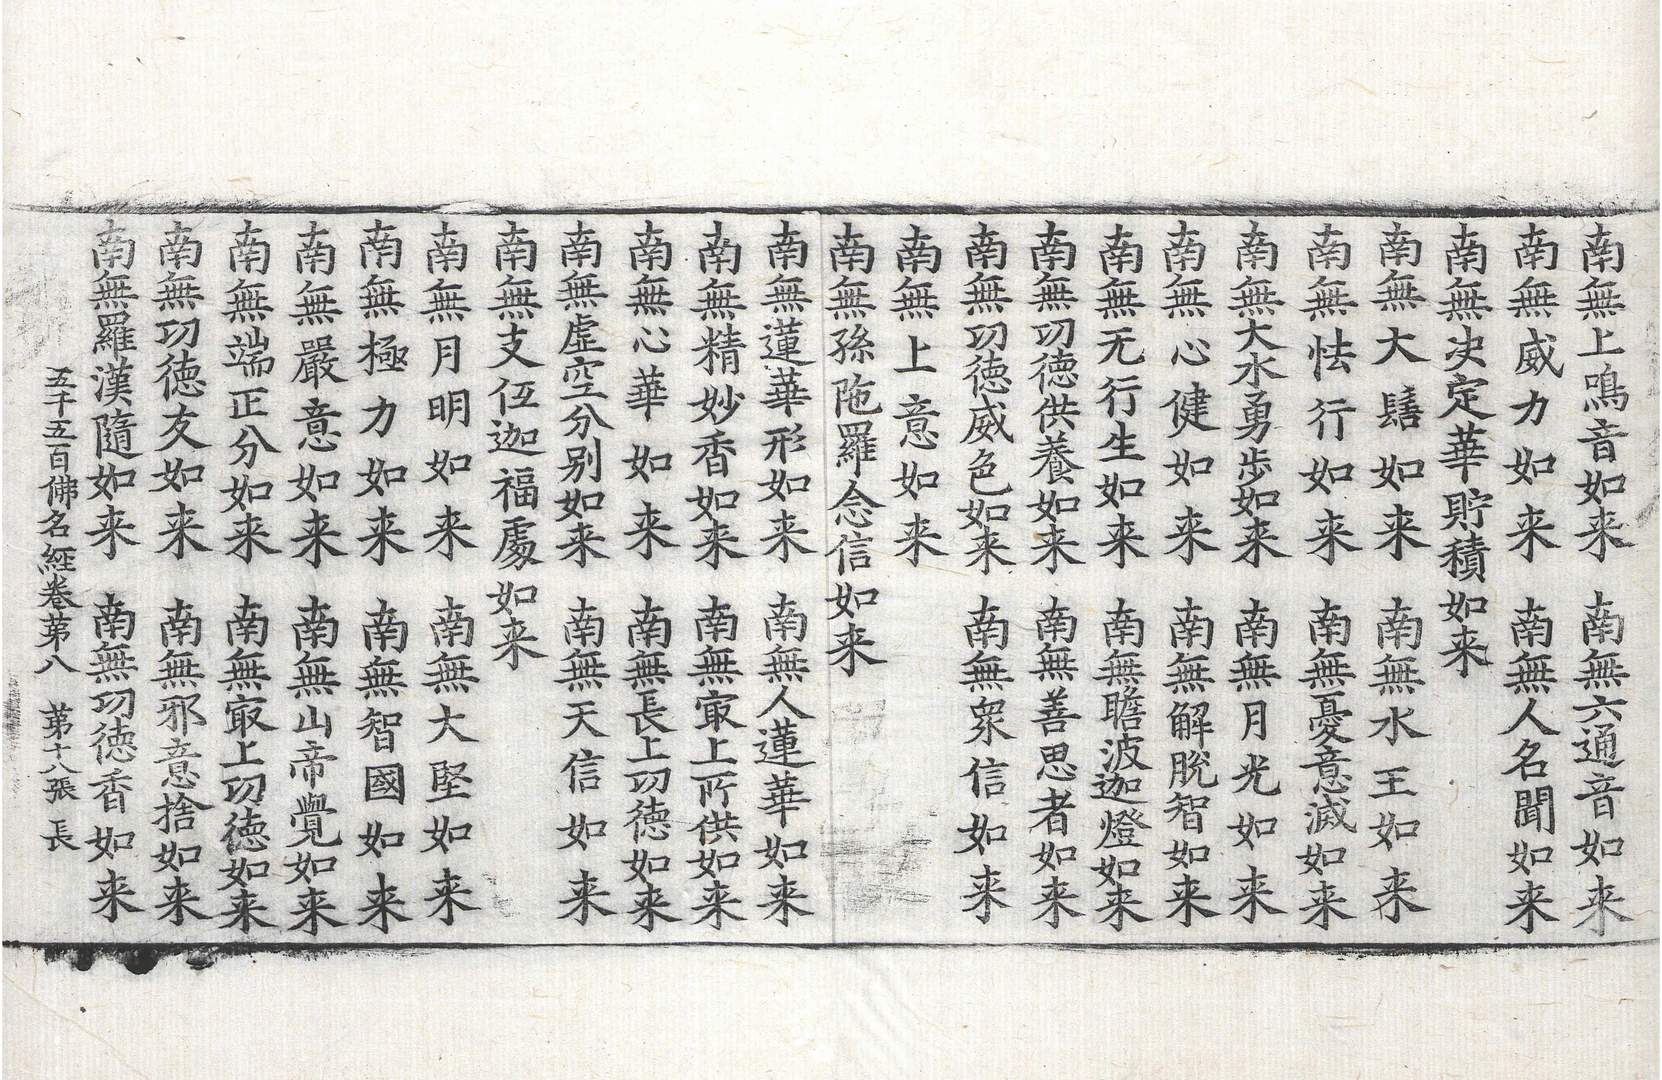 南無上鳴音如来 南無六通音如来
南無威力如来 南無人名聞如来
南無决定華貯積如来
南無大髻如来 南無水王如来
南無怯行如来 南無憂意滅如来
南無大水勇步如来 南無月光如来
南無心健如来 南無解脫智如来
南無无行生如来 南無瞻波迦燈如来
南無功德供養如来 南無善思者如来
南無功德威色如来 南無衆信如来
南無上意如来
南無孫陁羅念信如来
南無蓮華形如来 南無人蓮華如来
南無精妙香如来 南無㝡上所供如来
南無心華如来 南無長上功德如来
南無虛空分别如来 南無天信如来
南無支伍迦福處如来
南無月明如来 南無大堅如来
南無極力如来 南無智國如来
南無嚴意如来 南無山帝覺如来
南無端正分如来 南無㝡上功德如来
南無功德友如来 南無邪意捨如来
南無羅漢隨如来 南無功德香如来
五千五百佛名經卷第八 第十八張 長